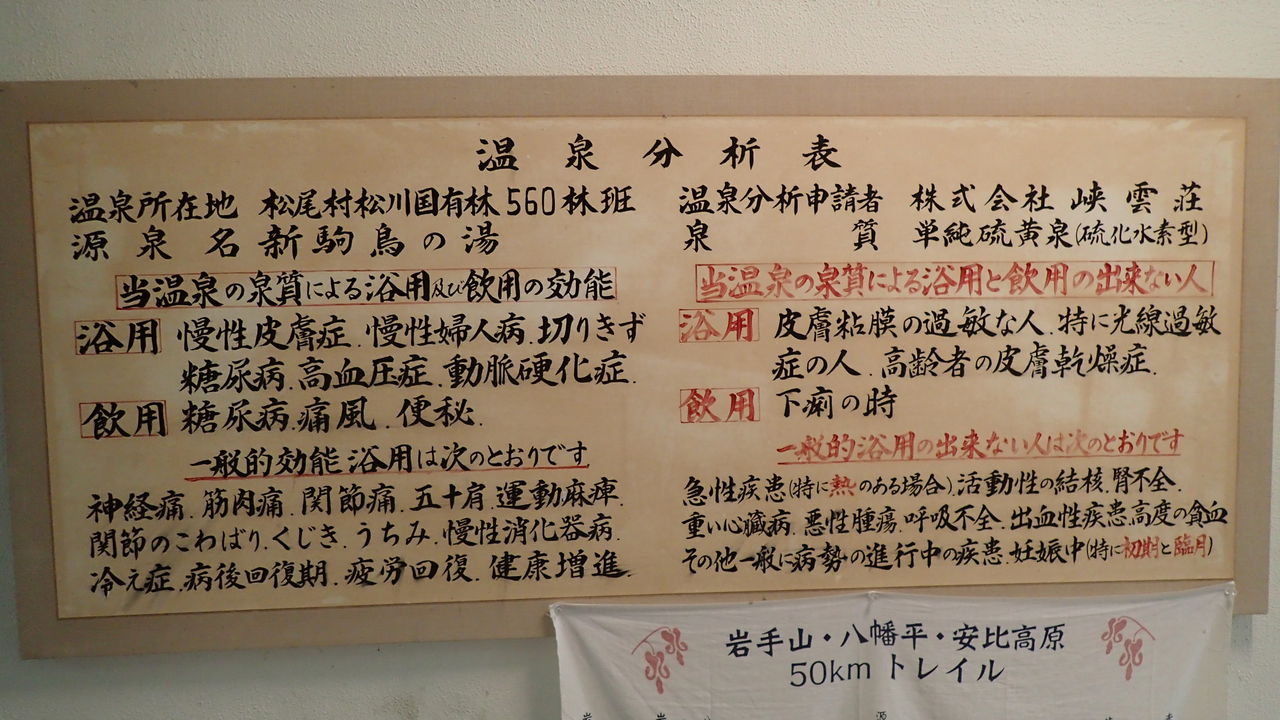 温泉分析表
温泉所在地 松尾村松川国有林560林班
源泉名 新駒鳥の湯
当温泉の泉質による浴用及び飲用の効能
浴用 慢性皮膚症.慢性婦人病.切りきず
糖尿病.高血圧症.動脈硬化症.
飲用 糖尿病.痛風.便秘.
一般的効能浴用は次のとおりです
神経痛.筋肉痛.関節痛.五十肩.運動麻痺.
関節のこわばり.くじき.うちみ.慢性消化器病.
冷え症.病後回復期.疲労回復.健康増進.
温泉分析申請者 株式会社 峡雲荘
泉質 単純硫黄泉(硫化水素型)
当温泉の泉質による浴用と飲用の出来ない人
浴用 皮膚粘膜の過敏な人.特に光線過敏
症の人.高齢者の皮膚乾燥症.
飲用 下痢の時
一般的浴用の出来ない人は次のとおりです
急性疾患(特に熱のある場合).活動性の結核.腎不全.
重い心臓病.悪性腫瘍.呼吸不全.出血性疾患.高度の貧血
その他一般に病勢の進行中の疾患.妊娠中(特に初期と臨月)
岩手山・八幡平・安比高原
50kmトレイル